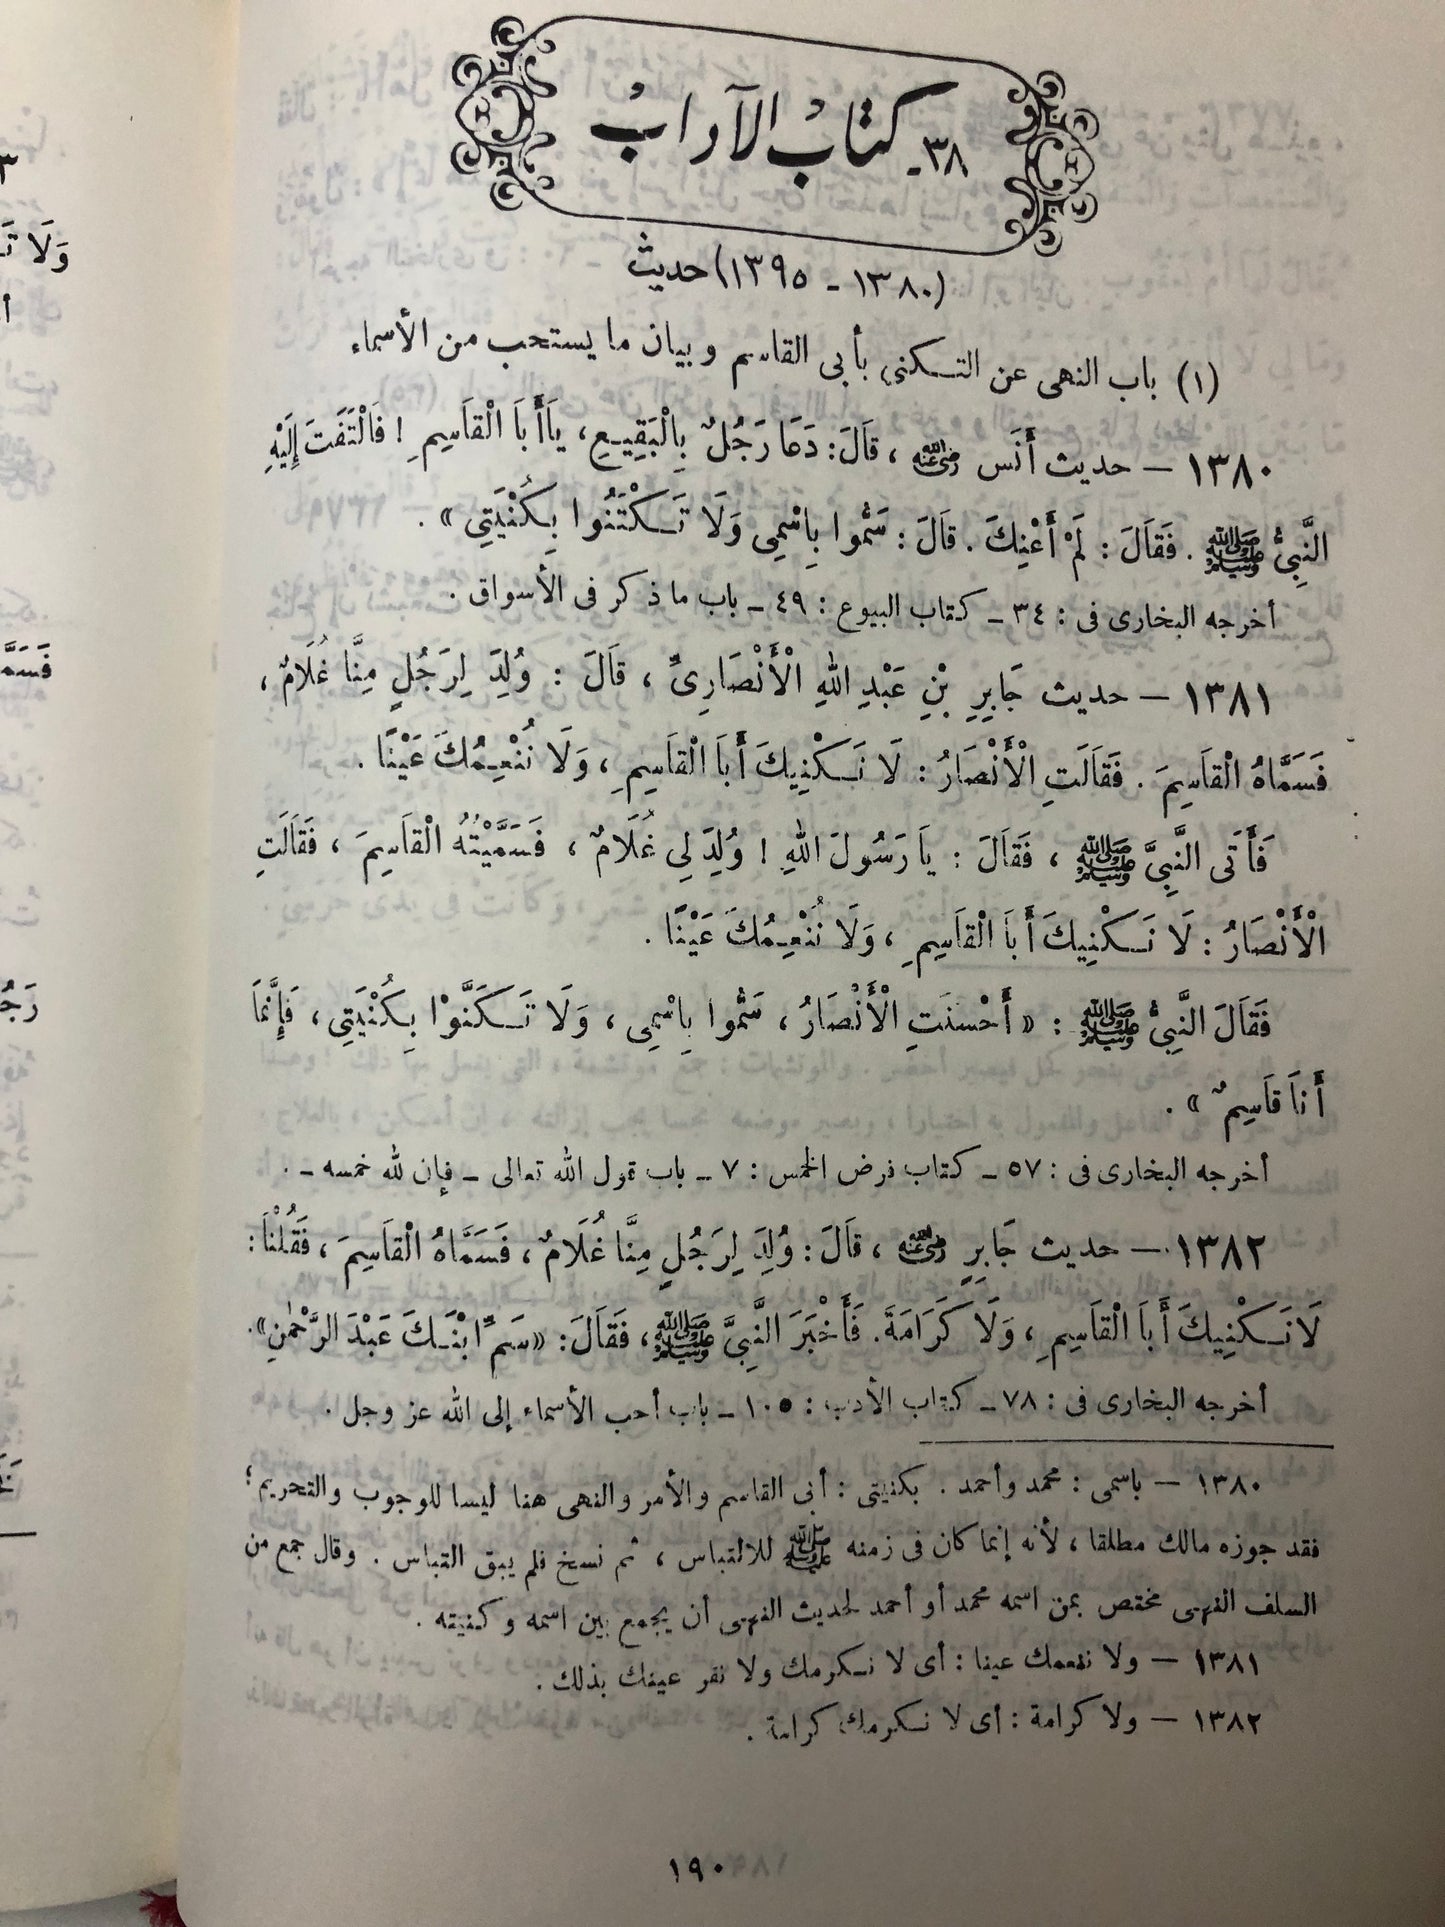 ٣٨ـ كتاب الآداب
(١٣٨٠ ـ ١٣٩٥) حديث
(١) باب النهى عن التكنى بأبى القاسم وبيان ما يستحب من الأسماء
١٣٨٠ — حديث أَنَس رضي الله عنه ، قَالَ: دَعَا رَجُلٌ بِالْبَقِيعِ، يَاأَبَا الْقَاسِمِ ! فَالْتَفَتَ إِلَيْهِ
النَّبِيُّ ﷺ . فَقَالَ : لَمْ أَعْنِكَ . قَالَ : سَمُّوا بِاسْمِى وَلَا تَكْتَنُوا بِكُنْيَتِى » .
أخرجه البخارى فى : ٣٤ ـ كتاب البيوع : ٤٩ ـ باب ما ذكر فى الأسواق .
١٣٨١ — حديث جَابِرِ بْنِ عَبْدِ اللهِ الْأَنْصَارِىِّ ، قَالَ : وُلِدَ لِرَجُلٍ مِنَّا غُلَامٌ ،
فَسَمَّاهُ الْقَاسِمَ . فَقَالَتِ الْأَنْصَارُ : لَا نَكْنِيكَ أَبَا الْقَاسِمِ ، وَلَا نُنْعِمُكَ عَيْنًا .
فَأَتَى النَّبِيَّ ﷺ ، فَقَالَ : يَا رَسُولَ اللهِ ! وُلِدَ لِى غُلَامٌ ، فَسَمَّيْتُهُ الْقَاسِمَ ، فَقَالَتِ
الْأَنْصَارُ : لَا نَكْنِيكَ أَبَا الْقَاسِمِ ، وَلَا نُنْعِمُكَ عَيْنًا .
فَقَالَ النَّبِيُّ ﷺ : « أَحْسَنَتِ الْأَنْصَارُ ، سَمُّوا بِاسْمِى ، وَلَا تَكَنَّوْا بِكُنْيَتِى ، فَإِنَّمَا
أَنَا قَاسِمٌ » .
أخرجه البخارى فى : ٥٧ ـ كتاب فرض الخمس : ٧ ـ باب قول الله تعالى ـ فإن لله خمسه ـ .
١٣٨٢ — حديث جَابِرٍ رضي الله عنه ، قَالَ : وُلِدَ لِرَجُلٍ مِنَّا غُلَامٌ ، فَسَمَّاهُ الْقَاسِمَ ، فَقُلْنَا :
لَا نَكْنِيكَ أَبَا الْقَاسِمِ ، وَلَا كَرَامَةَ . فَأَخْبَرَ النَّبِيَّ ﷺ ، فَقَالَ : «سَمِّ ابْنَكَ عَبْدَ الرَّحْمٰنِ» .
أخرجه البخارى فى : ٧٨ ـ كتاب الأدب : ١٠٥ ـ باب أحب الأسماء إلى الله عز وجل .
١٣٨٠ — باسمى : محمد وأحمد . بكنيتى : أبى القاسم والأمر والنهى هنا ليسا للوجوب والتحريم ؛
فقد جوزه مالك مطلقا ، لأنه إنما كان فى زمنه ﷺ للالتباس ، ثم نسخ فلم يبق التباس . وقال جمع من
السلف النهى مختص بمن اسمه محمد أو أحمد لحديث النهى أن يجمع بين اسمه وكنيته .
١٣٨١ — ولا ننعمك عينا : أى لا نكرمك ولا نقر عينك بذلك .
١٣٨٢ — ولا كرامة : أى لا نكرمك كرامة .
١٩٠